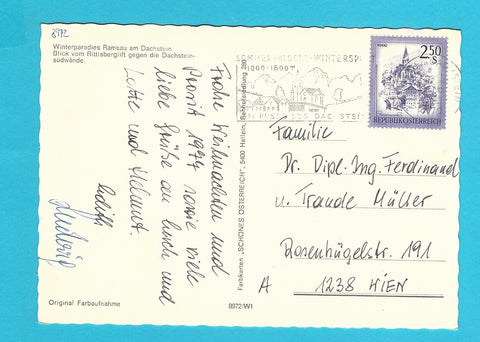 8972
Winterparadies Ramsau am Dachstein
Blick vom Rittisberglift gegen die Dachstein-
südwände.
Frohe Weihnachten und
Prosit 1979 sowie viele
liebe Grüße an Euch und
Lotte und Helmut.
Edith
Original Farbaufnahme
Farbkarten "SCHÖNES ÖSTERREICH", 5400 Hallein,
8972/W1
SOMMERFRISCHE-WINTERSP
1000-1800 m
FUSSE DES DACHSTEIN
2.50
S
REPUBLIK ÖSTERREICH
Familie
Dr. Dipl.-Ing. Ferdinand
u. Traude Müller
Rosenhügelstr. 191
A 1238 WIEN